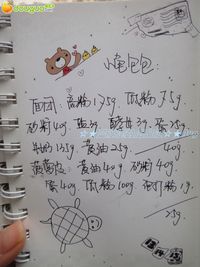 douguo
小龟包:
面团: 高粉175g. 低粉75g.
砂糖40g. 盐3g. 酵母3g. 蛋25g.
135g. 黄油25g. 40g
菠萝皮: 黄油40g 砂糖40g
蛋40g 低粉100g. 1g
25g